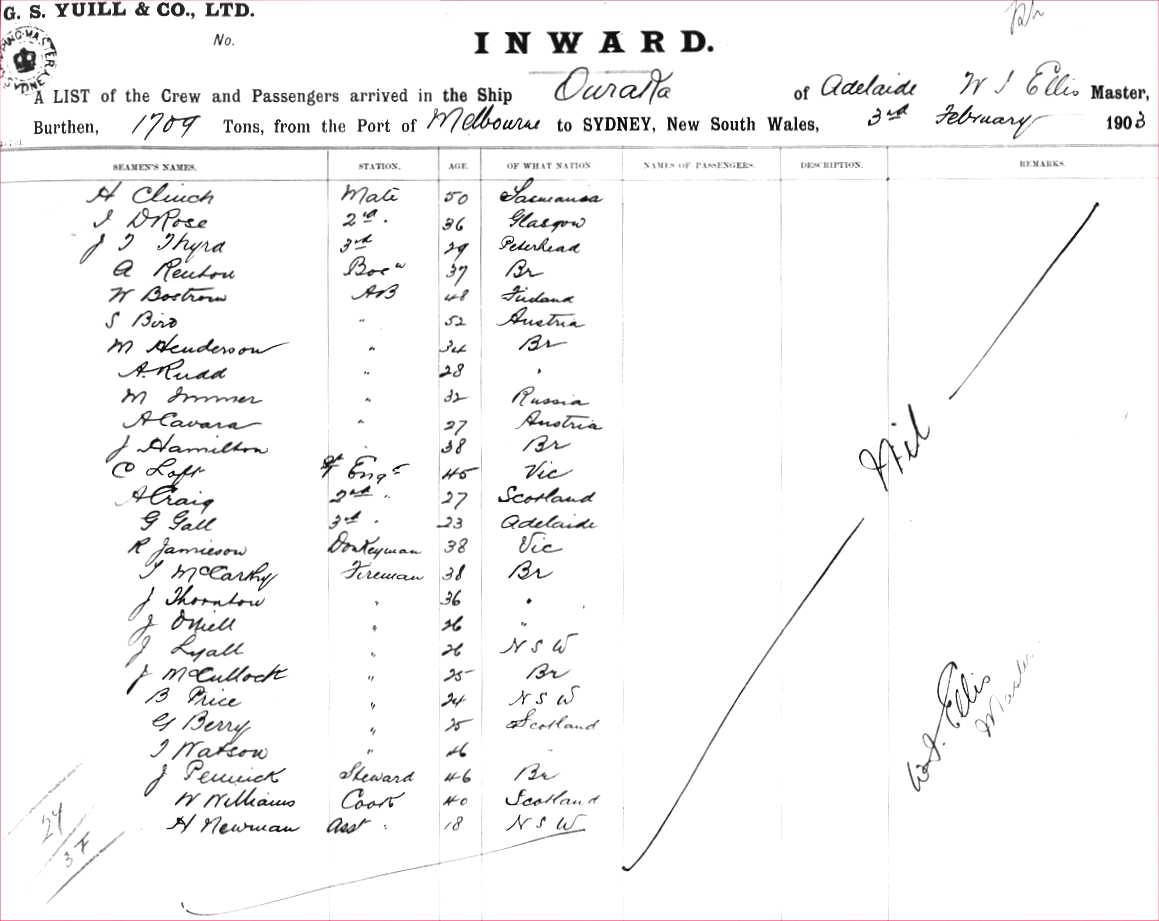 G. S. YUILL & CO., LTD.
No.
INWARD.
SYDNEY
A LIST of the Crew and Passengers arrived in the Ship Ouraka of Adelaide W J Ellis Master,
Burthen, 1709 Tons, from the Port of Melbourne to SYDNEY, New South Wales, 3rd February 1903
SEAMEN'S NAMES. STATION. AGE. OF WHAT NATION NAMES OF PASSENGERS. DESCRIPTION. REMARKS.
H Clinch Mate 50 Tasmania
J D Rose 2nd. 36 Glasgow
J T Thyrd 3rd 29 Peterhead
A Renton Bosn 37 Br
W Bostrom AB 48 Finland
S Biro " 52 Austria
M Henderson " 34 Br
A. Rudd " 28 "
M Immer " 32 Russia
A Cavara " 27 Austria
J Hamilton " 38 Br
C Loft 1st Engr 45 Vic
A Craig 2nd " 27 Scotland
G Gall 3rd " 23 Adelaide
R Jamieson Donkeyman 38 Vic
T McCarthy Fireman 38 Br
J Thornton " 36 "
J ONiell " 26 "
J Lyall " 26 N S W
J McCullock " 25 Br
B Price " 24 N S W
G Berry " 25 Scotland
T Watson " 46 "
J Pennick Steward 46 Br
W Williams Cook 40 Scotland
H Newman Asst " 18 N S W
Nil
W. J. Ellis
Master
24
3 F